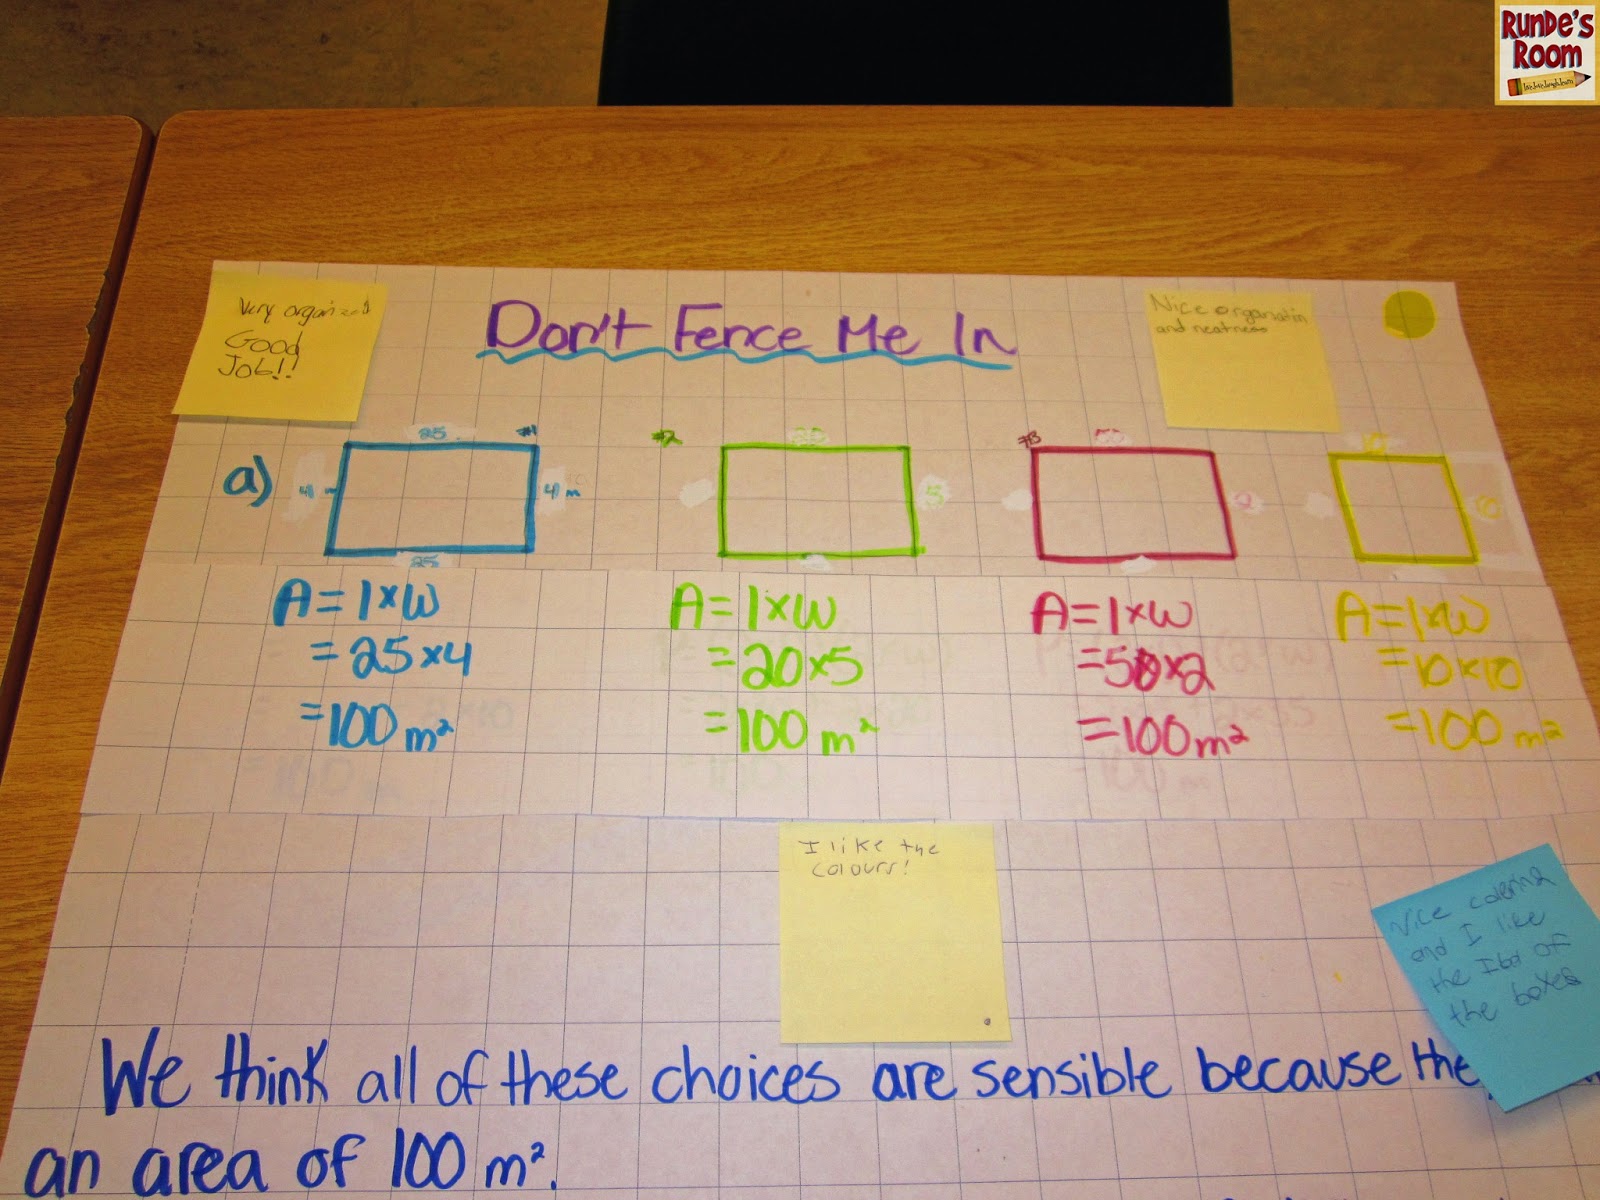 RUNDE'S
ROOM
Very organized
Good
Job!!
Don't Fence Me In
Nice organization
and neatness
a)
25
#1
4
4 m
25
#2
20
5
#3
50
2
10
10
A = l × w
= 25 × 4
= 100 m²
A = l × w
= 20 × 5
= 100 m²
A = l × w
= 50 × 2
= 100 m²
A = l × w
= 10 × 10
= 100 m²
I like the
colours!
Nice coloring
and I like
the of
the boxes
We think all of these choices are sensible because
an area of 100 m².